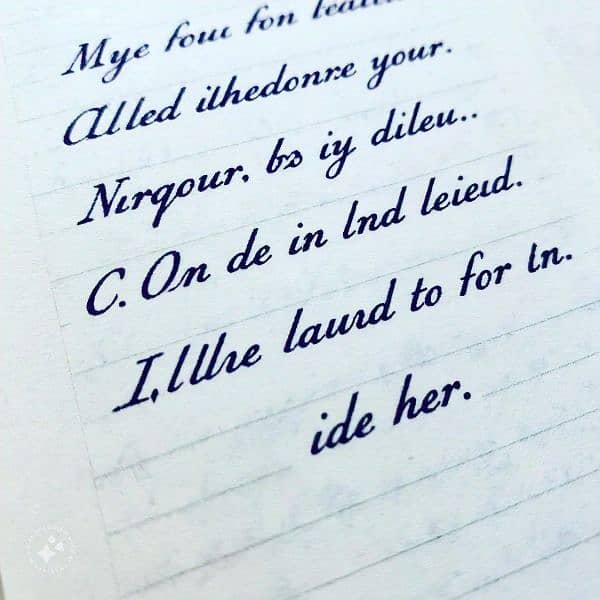 Mye fouc fon
Alled ilhedonre your.
Nırqour. bɜ iy dileu..
C. On de in lnd leieıd.
I,lUhe lauırd to for ln.
ide her.